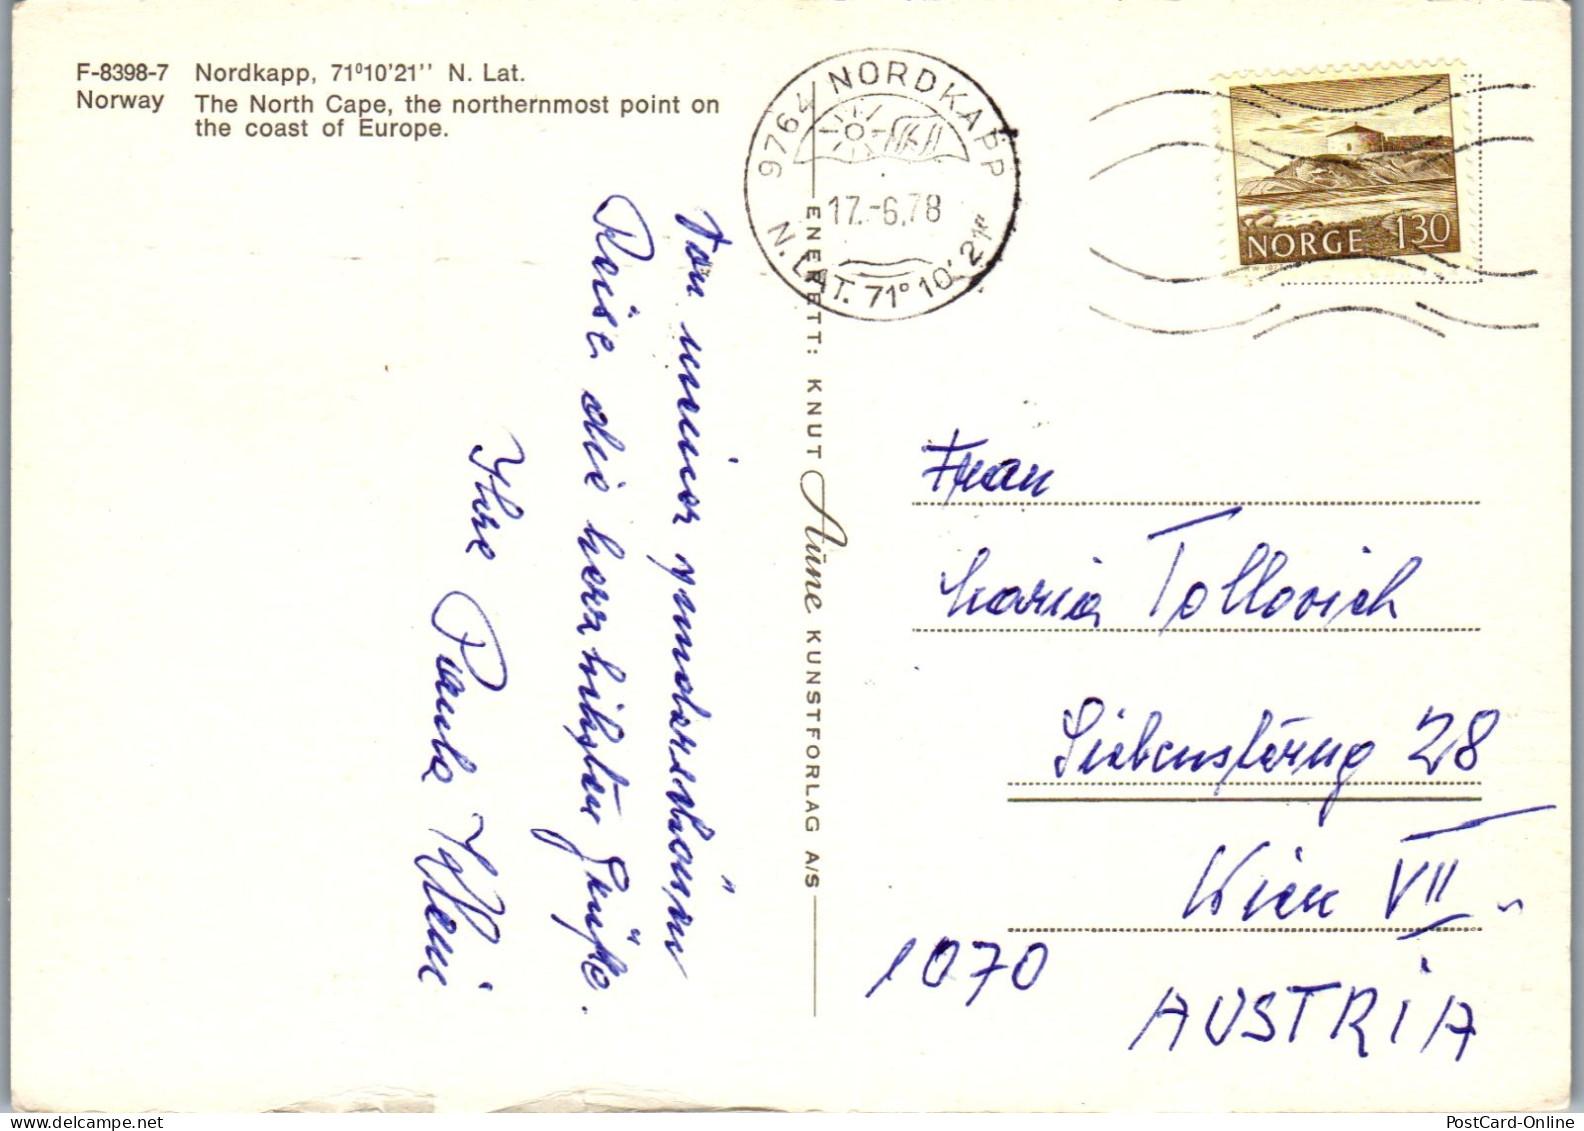 F-8398-7 Nordkapp, 71⁰10'21'' N. Lat.
Norway The North Cape, the northernmost point on
the coast of Europe.
9764 NORDKAPP
17.-6.78
N. LAT. 71° 10' 21"
NORGE 130
ENERETT: KNUT Aune KUNSTFORLAG A/S
Von meiner wunderschönen
Reise die herzlichsten Grüße.
Ihre Paula
Frau
Maria Tollovich
Siebensterng 28
Wien VII
1070
AUSTRIA
PostCard-Online